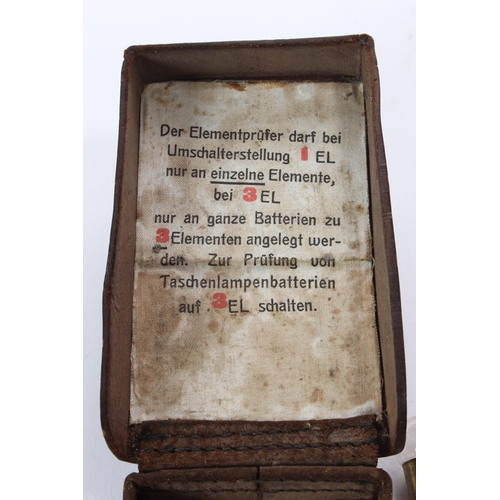 Der Elementprüfer darf bei
Umschalterstellung 1 EL
nur an einzelne Elemente,
bei 3 EL
nur an ganze Batterien zu
3 Elementen angelegt wer-
den. Zur Prüfung von
Taschenlampenbatterien
auf 3 EL schalten.